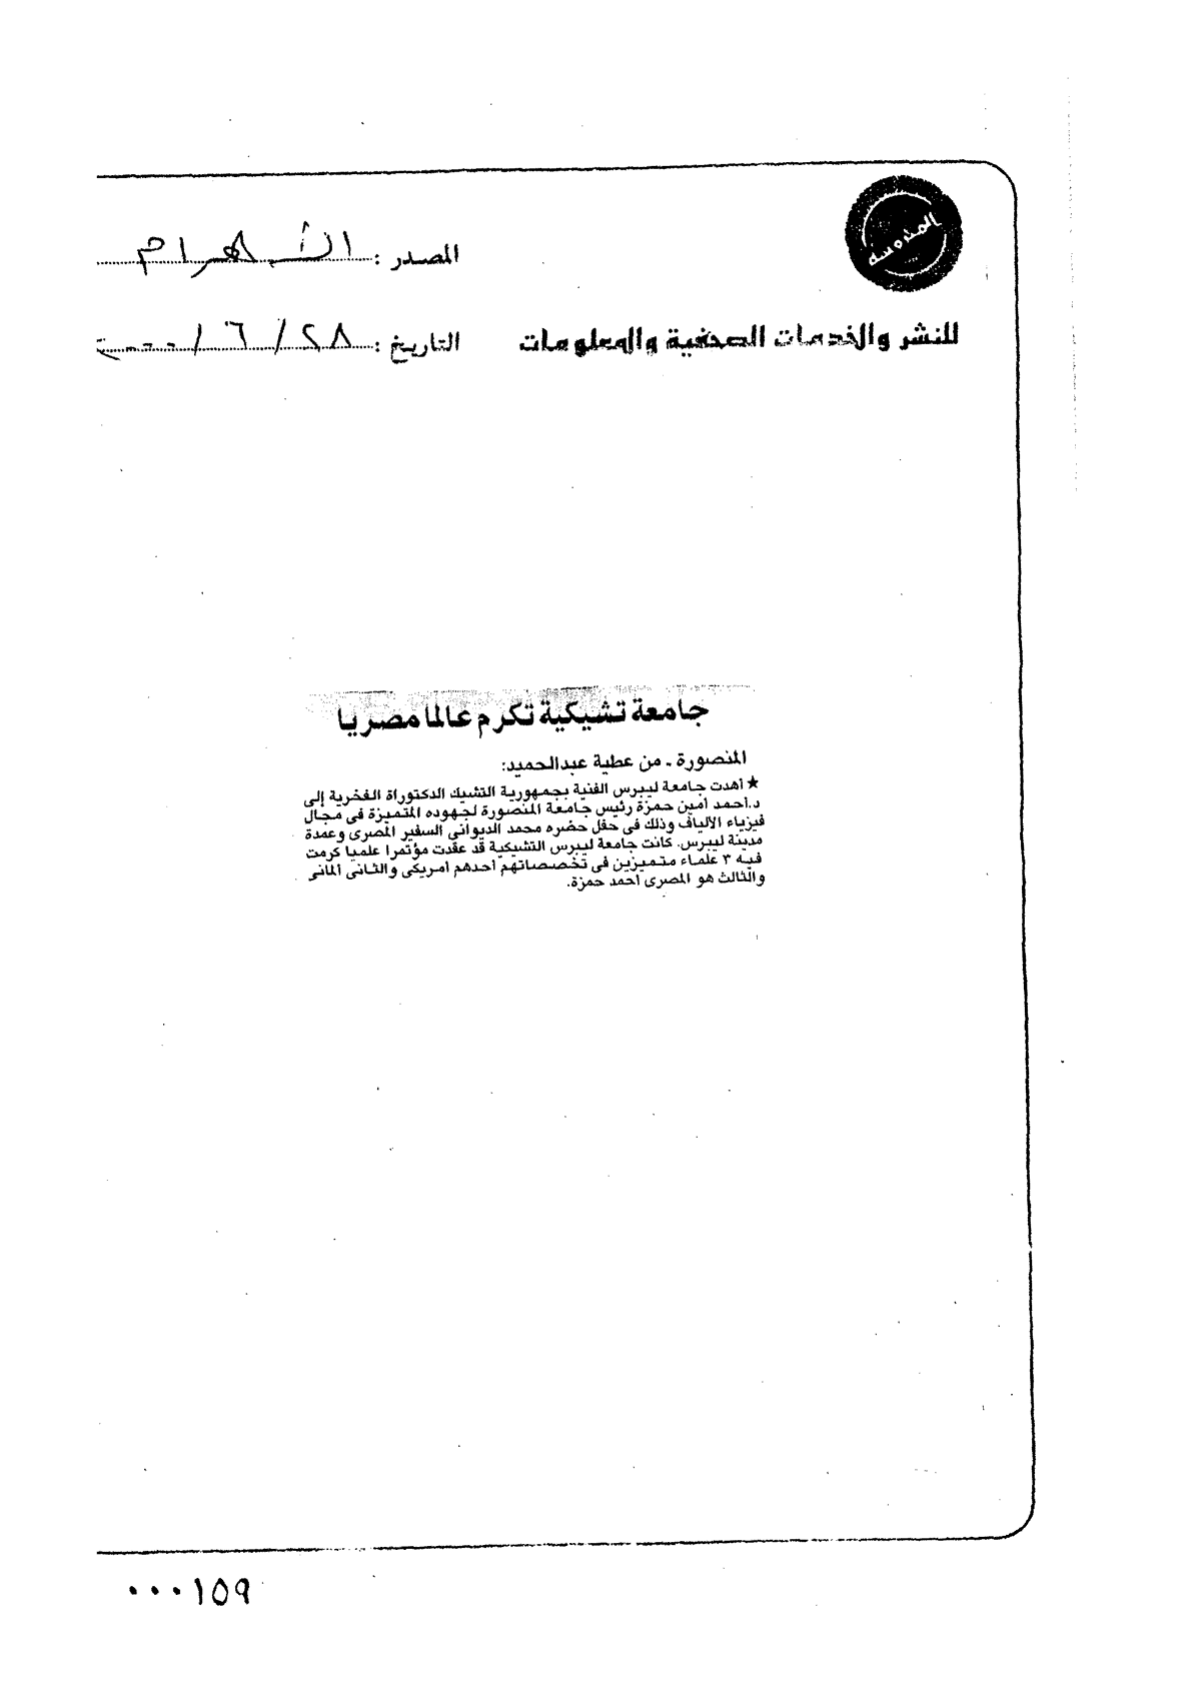 المصدر : الأهرام
للنشر والخدمات الصحفية والمعلومات
التاريخ : ٢٨ / ٦ / ٢٠٠٠
جامعة تشيكية تكرم عالما مصريا
المنصورة ـ من عطية عبدالحميد:
★ أهدت جامعة ليبرس الفنية بجمهورية التشيك الدكتوراة الفخرية إلى
د.أحمد أمين حمزة رئيس جامعة المنصورة لجهوده المتميزة فى مجال
فيزياء الالياف وذلك فى حفل حضره محمد الديوانى السفير المصرى وعمدة
مدينة ليبرس. كانت جامعة ليبرس التشيكية قد عقدت مؤتمرا علميا كرمت
فيه ٣ علماء متميزين فى تخصصاتهم أحدهم أمريكى والثانى المانى
والثالث هو المصرى أحمد حمزة.
٠٠٠١٥٩